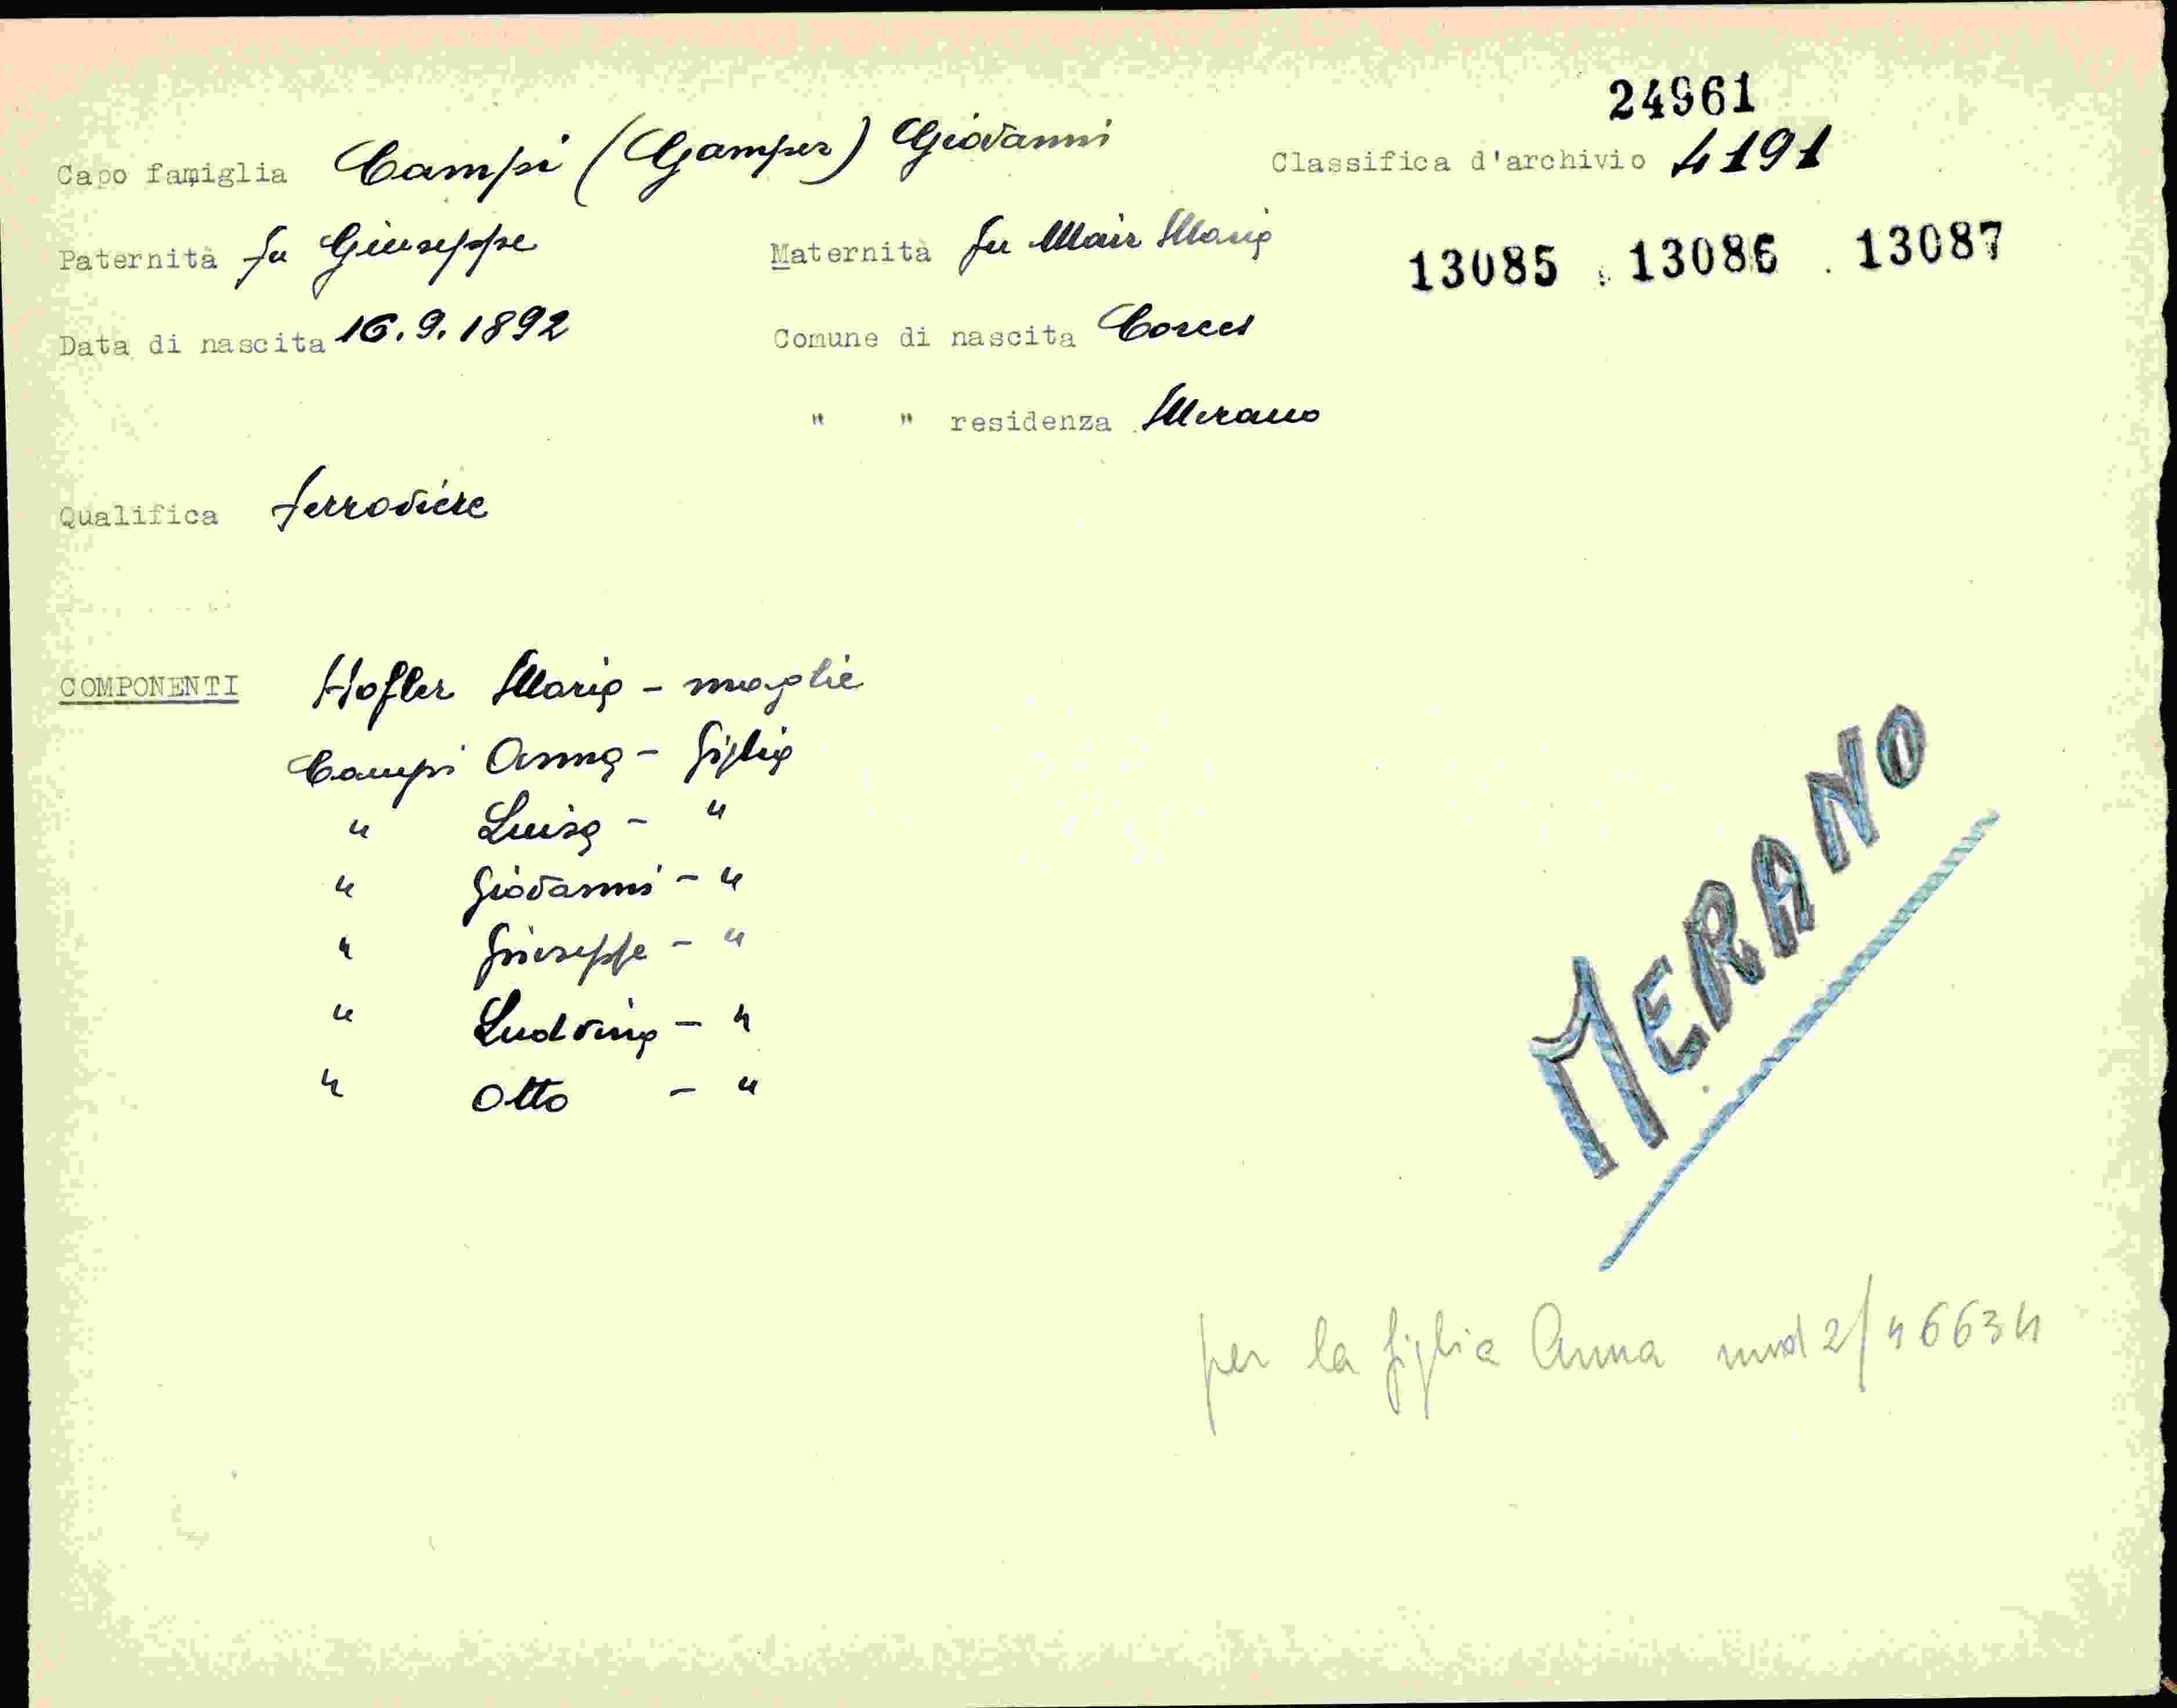 24961
Capo famiglia Campi (Gamper) Giovanni Classifica d'archivio 4191
Paternità fu Giuseppe Maternità fu Mair Maria 13085 . 13086 . 13087
Data di nascita 16.9.1892 Comune di nascita Corces
" " residenza Merano
Qualifica ferroviere
COMPONENTI Hofler Maria - moglie
Campi Anna - figlia
" Luisa - "
" Giovanni - "
" Giuseppe - "
" - "
" Otto - "
MERANO
per la figlia Anna mod 2/46634